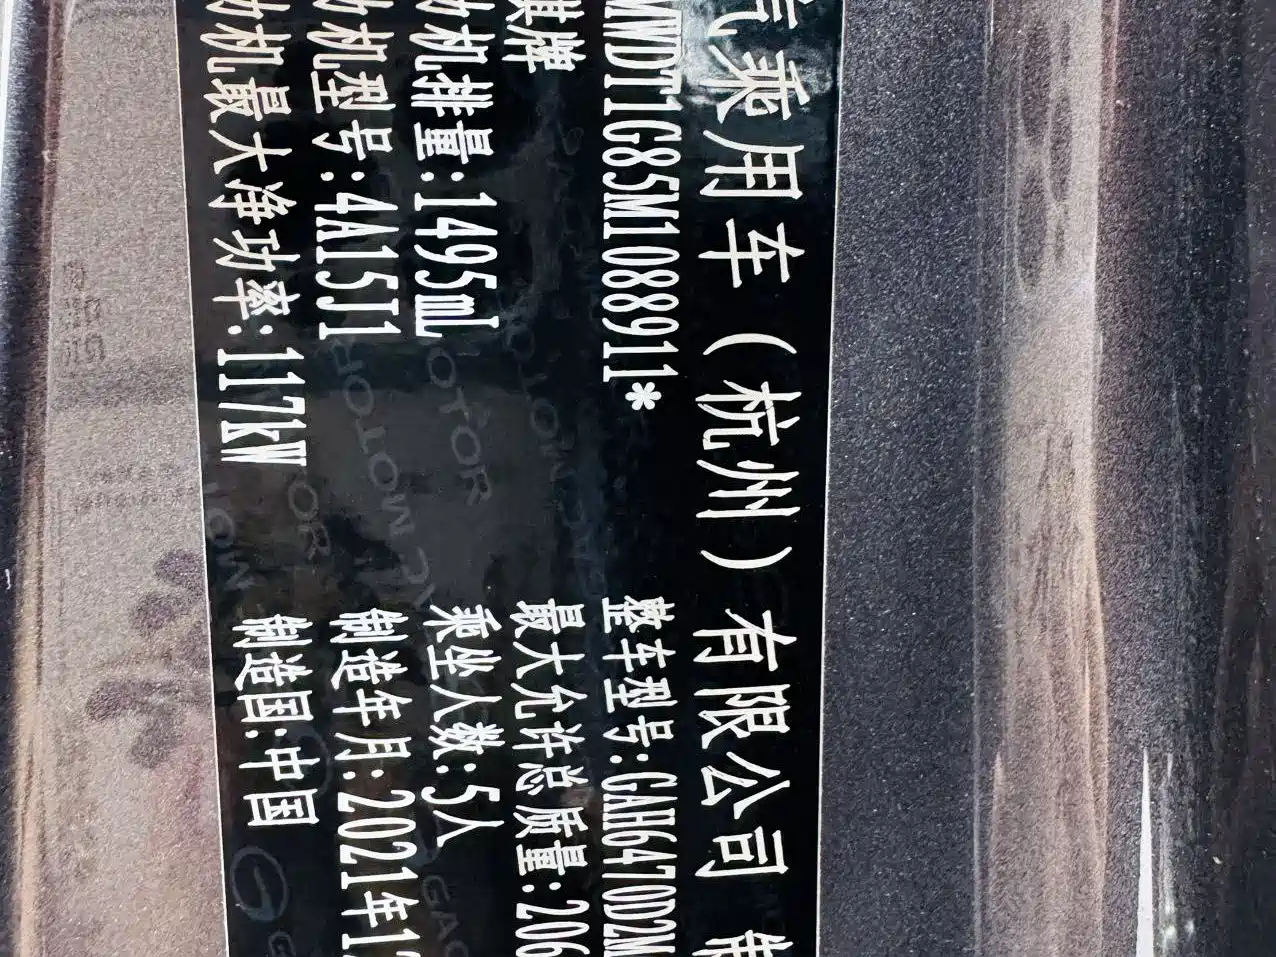 汽乘用车（杭州）有限公司 制
MWDT1G85M1088911* 整车型号:GAH6470D2M
祺牌 最大允许总质量:206
动机排量:1495mL 乘坐人数:5人
动机型号:4A15J1 制造年月:2021年1
动机最大净功率:117kW 制造国:中国